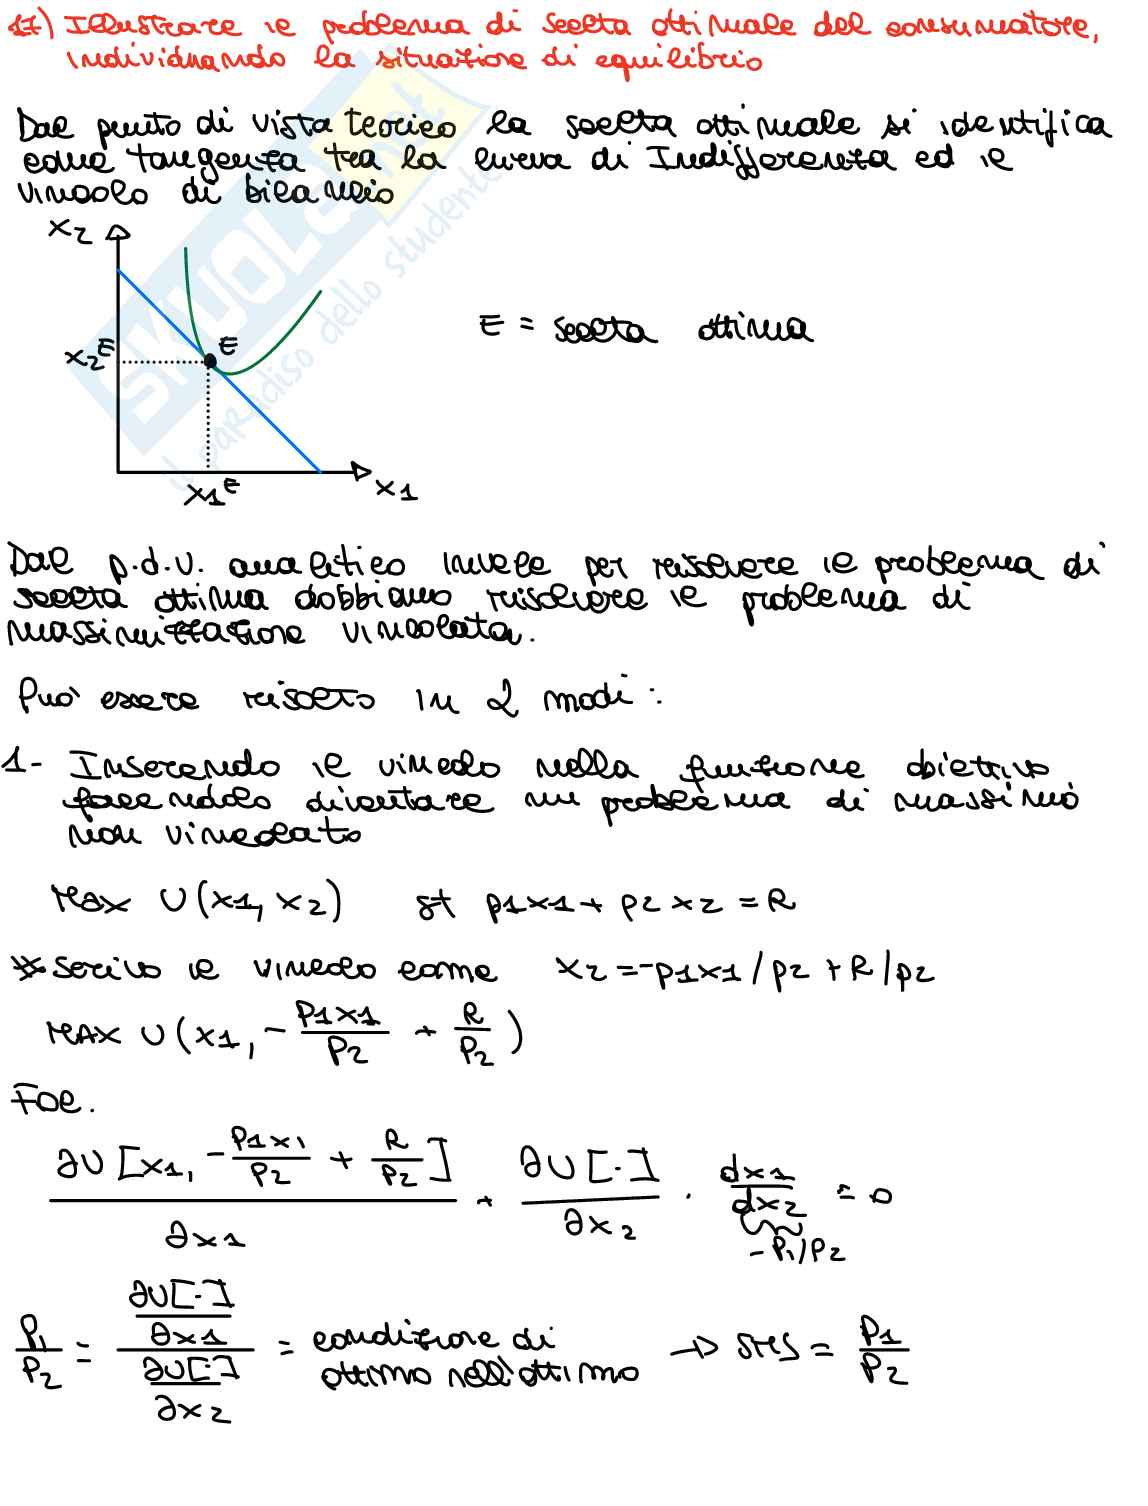 17) Illustrare il problema di scelta ottimale del consumatore,
individuando la situazione di equilibrio
Dal punto di vista teorico la scelta ottimale si identifica
come tangenza tra la curva di Indifferenza ed il
vincolo di bilancio
x2
E
x2 E
E = scelta ottima
x1 E
x1
SKUOLA.net
il paradiso dello studente
Dal p.d.v. analitico invece per risolvere il problema di
scelta ottima dobbiamo risolvere il problema di
massimizzazione vincolata.
Può essere risolto in 2 modi:
1- Inserendo il vincolo nella funzione obiettivo
facendolo diventare un problema di massimo
non vincolato
MAX U(x1, x2) st p1x1 + p2x2 = R
* Scrivo il vincolo come x2 = -p1x1/p2 + R/p2
MAX U(x1, - P1x1/P2 + R/P2)
FOC.
∂U[x1, - P1x1/P2 + R/P2]/∂x1 + ∂U[·]/∂x2 · dx1/dx2 = 0
-P1/P2
P1/P2 = (∂U[·]/∂x1)/(∂U[·]/∂x2) = condizione di
ottimo nell'ottimo → SMS = P1/P2